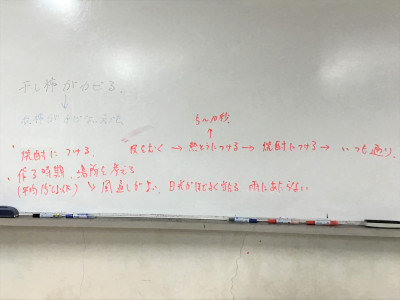 干し柿がカビる.
↓
5〜10秒.
↑
・焼酎につける. 皮をむく → 熱とうにつける → 焼酎につける → いつも通り.
・作る時期、場所を考える
↳ 風通しがよい、日光がほどよく当たる 雨にあたらない